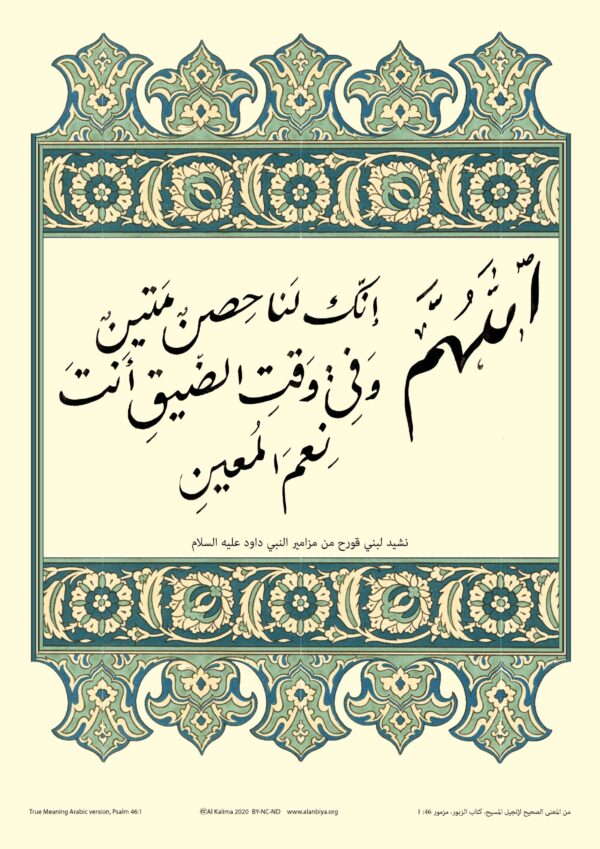 اللَّهُمَّ إنَّك لَنا حِصنٌ مَتينٌ
وَفِي وَقتِ الضّيقِ أنتَ
نِعمَ المُعينِ
نشيد لبني قورح من مزامير النبي داود عليه السلام
True Meaning Arabic version, Psalm 46:1
🅭Al Kalima 2020 BY-NC-ND www.alanbiya.org
من المعنى الصحيح لإنجيل المسيح، كتاب الزبور، مزمور 46: 1